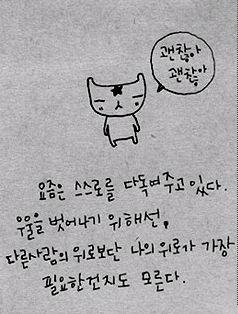 괜찮아
괜찮아
요즘은 스스로를 다독여주고 있다.
우울을 벗어나기 위해선,
다른사람의 위로보단 나의 위로가 가장
필요한건지도 모른다.